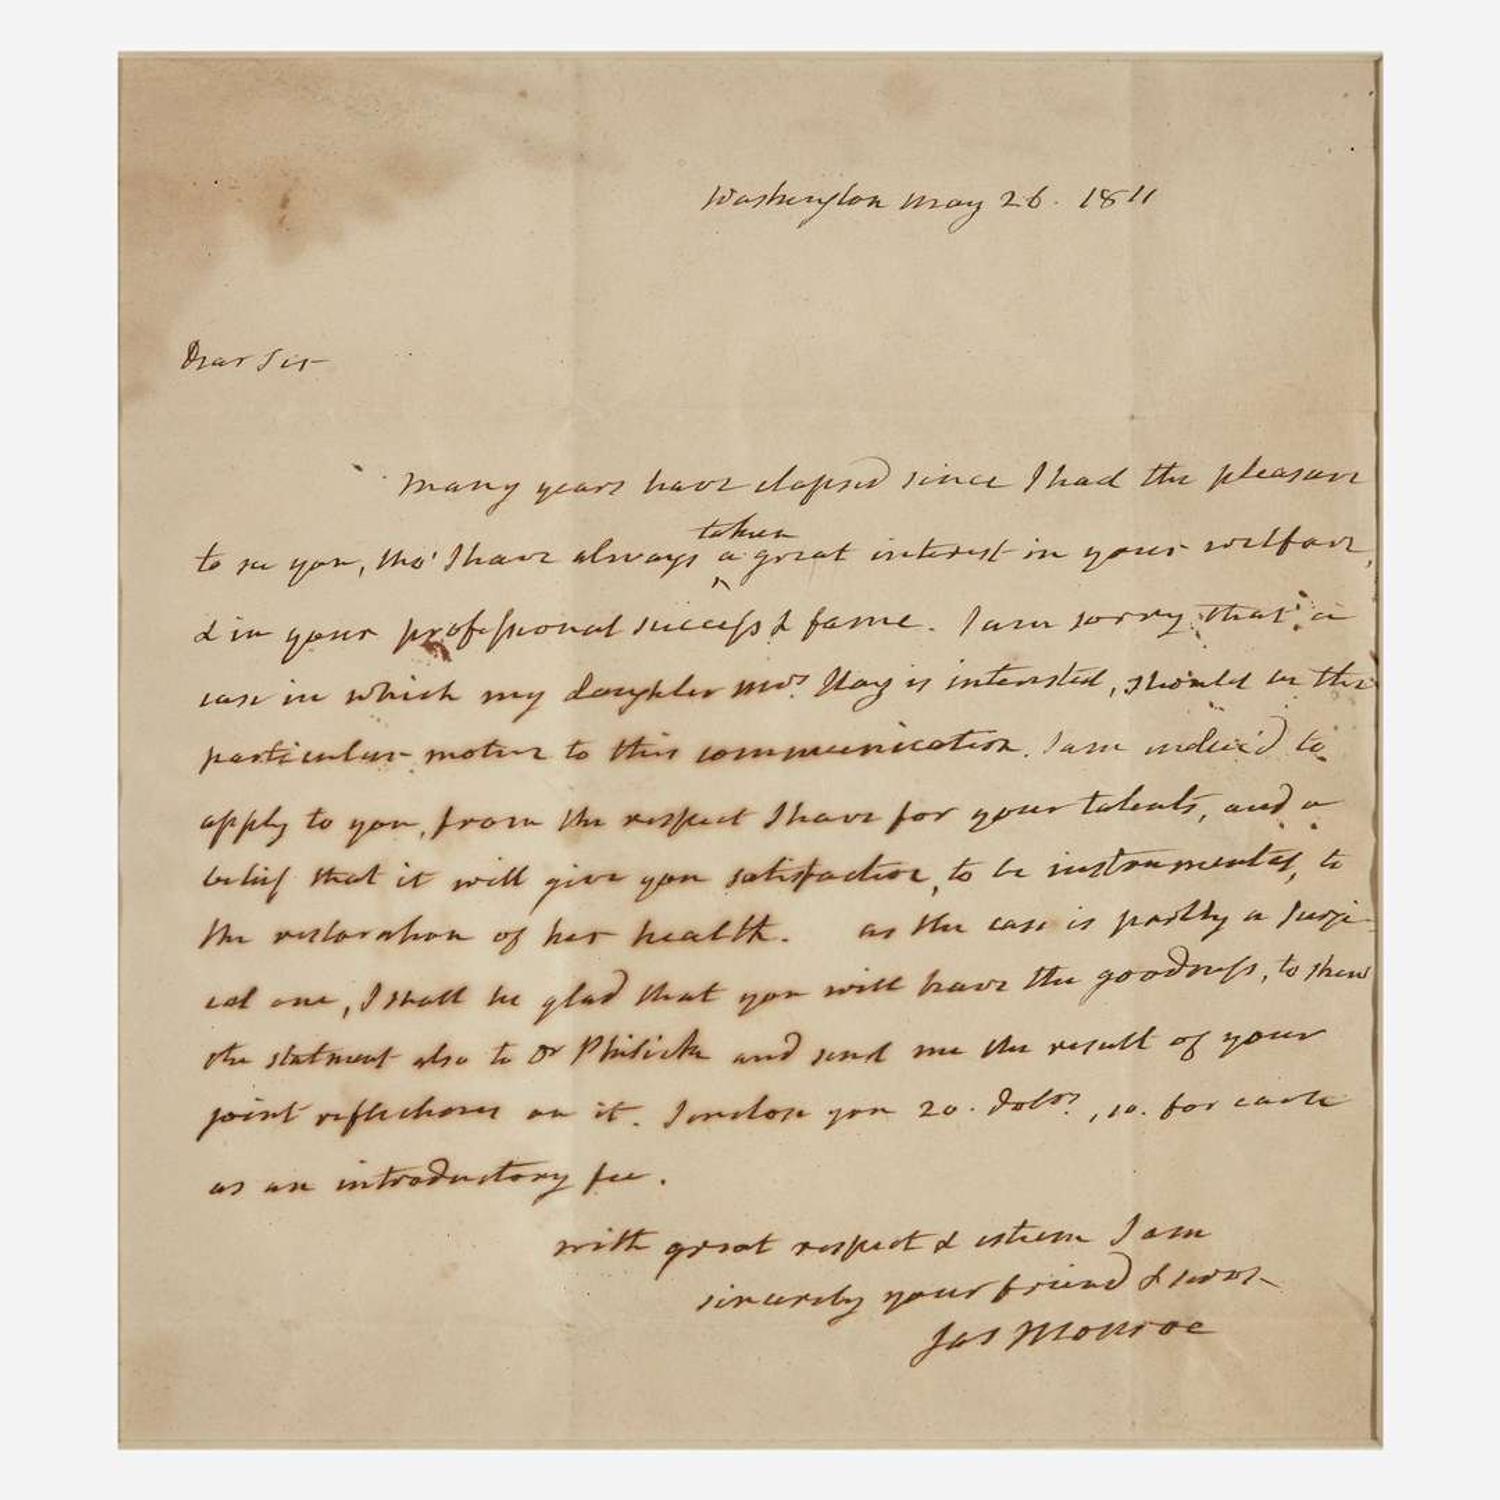 Washington May 26. 1811
Dear Sir
Many years have elapsed since I had the pleasure
taken
to see you, tho' I have always ^ a great interest in your welfare,
& in your professional success & fame. I am sorry that a
case in which my daughter Mrs. Hay is interested, should be the
particular motive to this communication. I am induc'd to
apply to you, from the respect I have for your talents, and a
belief that it will give you satisfaction, to be instrumental, to
the restoration of her health. as the case is partly a surgi-
cal one, I shall be glad that you will have the goodness, to shew
the statment also to Dr Phisick and send me the result of your
joint reflections on it. I enclose you 20. dolrs., 10. for each
as an introductory fee.
with great respect & esteem I am
sincerely your friend & servt
Jas Monroe